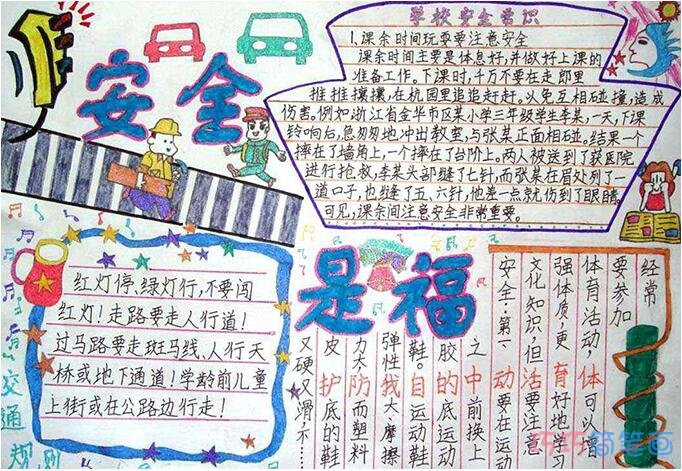 安全
学校安全常识
1、课余时间玩耍要注意安全
课余时间主要是体息好,并做好上课的
准备工作。下课时,千万不要在走郎里
推推攘攘,在校园里追追赶赶。以免互相碰撞,造成
伤害。例如浙江省金华市区某小学三年级学生李某,一天,下课
铃响后,急匆匆地冲出教室,与张某正面相碰。结果一个
摔在了墙角上,一个摔在了台阶上。两人被送到了获医院
进行抢救,李某头部缝了七针,而张某在眉处列了一
道口子,也缝了五、六针,他差一点就伤到了眼睛。
可见,课余间注意安全非常重要。
红灯停、绿灯行,不要闯
红灯!走路要走人行道!
过马路要走斑马线、人行天
桥或地下通道!学龄前儿童
上街或在公路边行走!
交通规则
是福
经常
要参加
体育活动,体可以增
强体质,更育好地学习
文化知识,但活要注意
安全·第一动要在运动
之中前换上
胶的底运动
鞋。自运动鞋
弹性找大、摩擦
力大防而塑料
皮护底的鞋
又硬又滑,不
巧巧简笔画